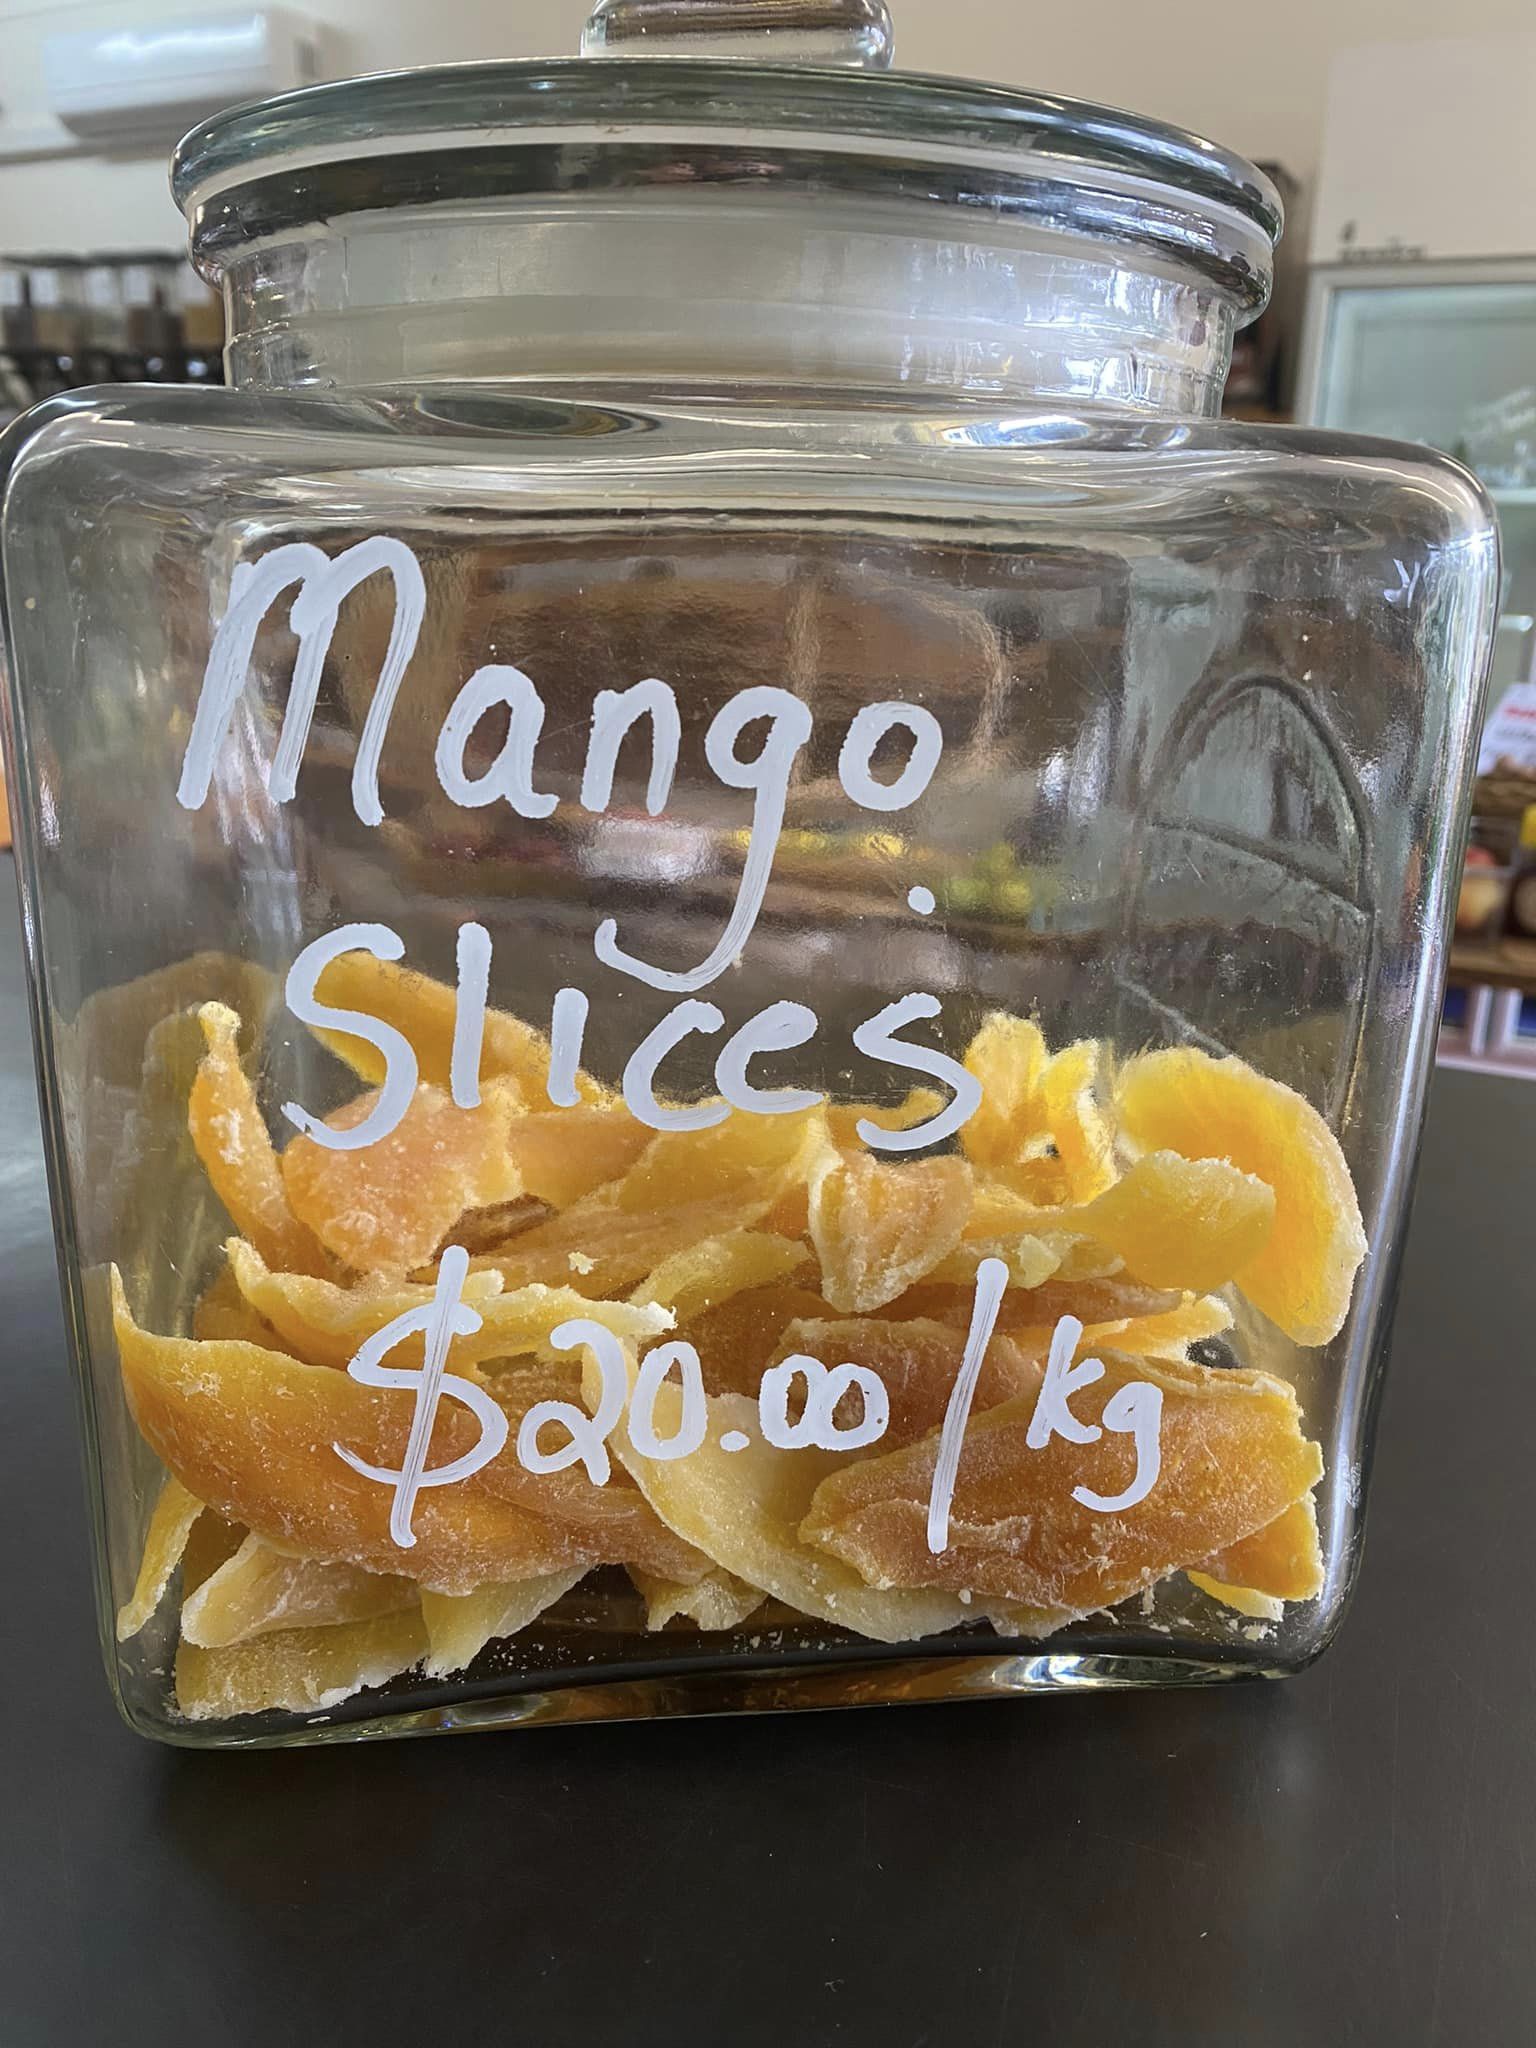 Mango
Slices
$20.00/kg